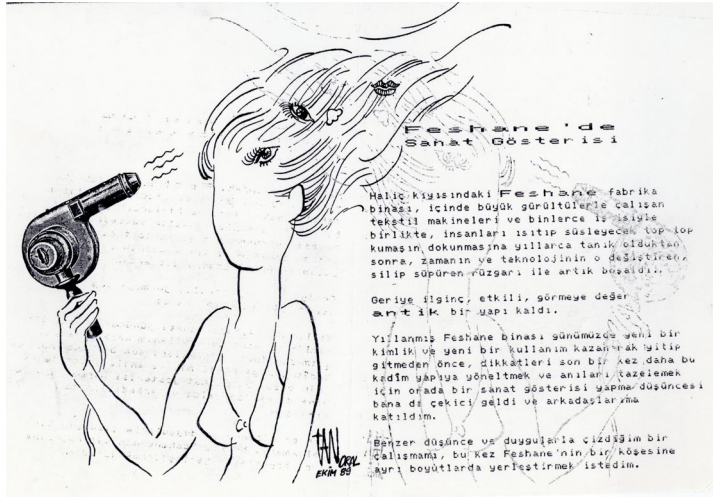 Feshane'de
Sanat Gösterisi
Haliç kıyısındaki Feshane fabrika
binası, içinde büyük gürültülerle çalışan
tekstil makineleri ve binlerce işçisiyle
birlikte, insanları ısıtıp süsleyecek top top
kumaşın dokunmasına yıllarca tanık olduktan
sonra, zamanın ve teknolojinin o değiştiren,
silip süpüren rüzgarı ile artık boşaldı..
Geriye ilginç, etkili, görmeye değer
antik bir yapı kaldı.
Yıllanmış Feshane binası günümüzde yeni bir
kimlik ve yeni bir kullanım kazanarak yitip
gitmeden önce, dikkatleri son bir kez daha bu
kadîm yapıya yöneltmek ve anıları tazelemek
için orada bir sanat gösterisi yapma düşüncesi
bana da çekici geldi ve arkadaşlarıma
katıldım.
Benzer düşünce ve duygularla çizdiğim bir
çalışmamı, bu kez Feshane'nin bir köşesine
ayrı boyutlarda yerleştirmek istedim.
TAN
ORAL
EKİM 89